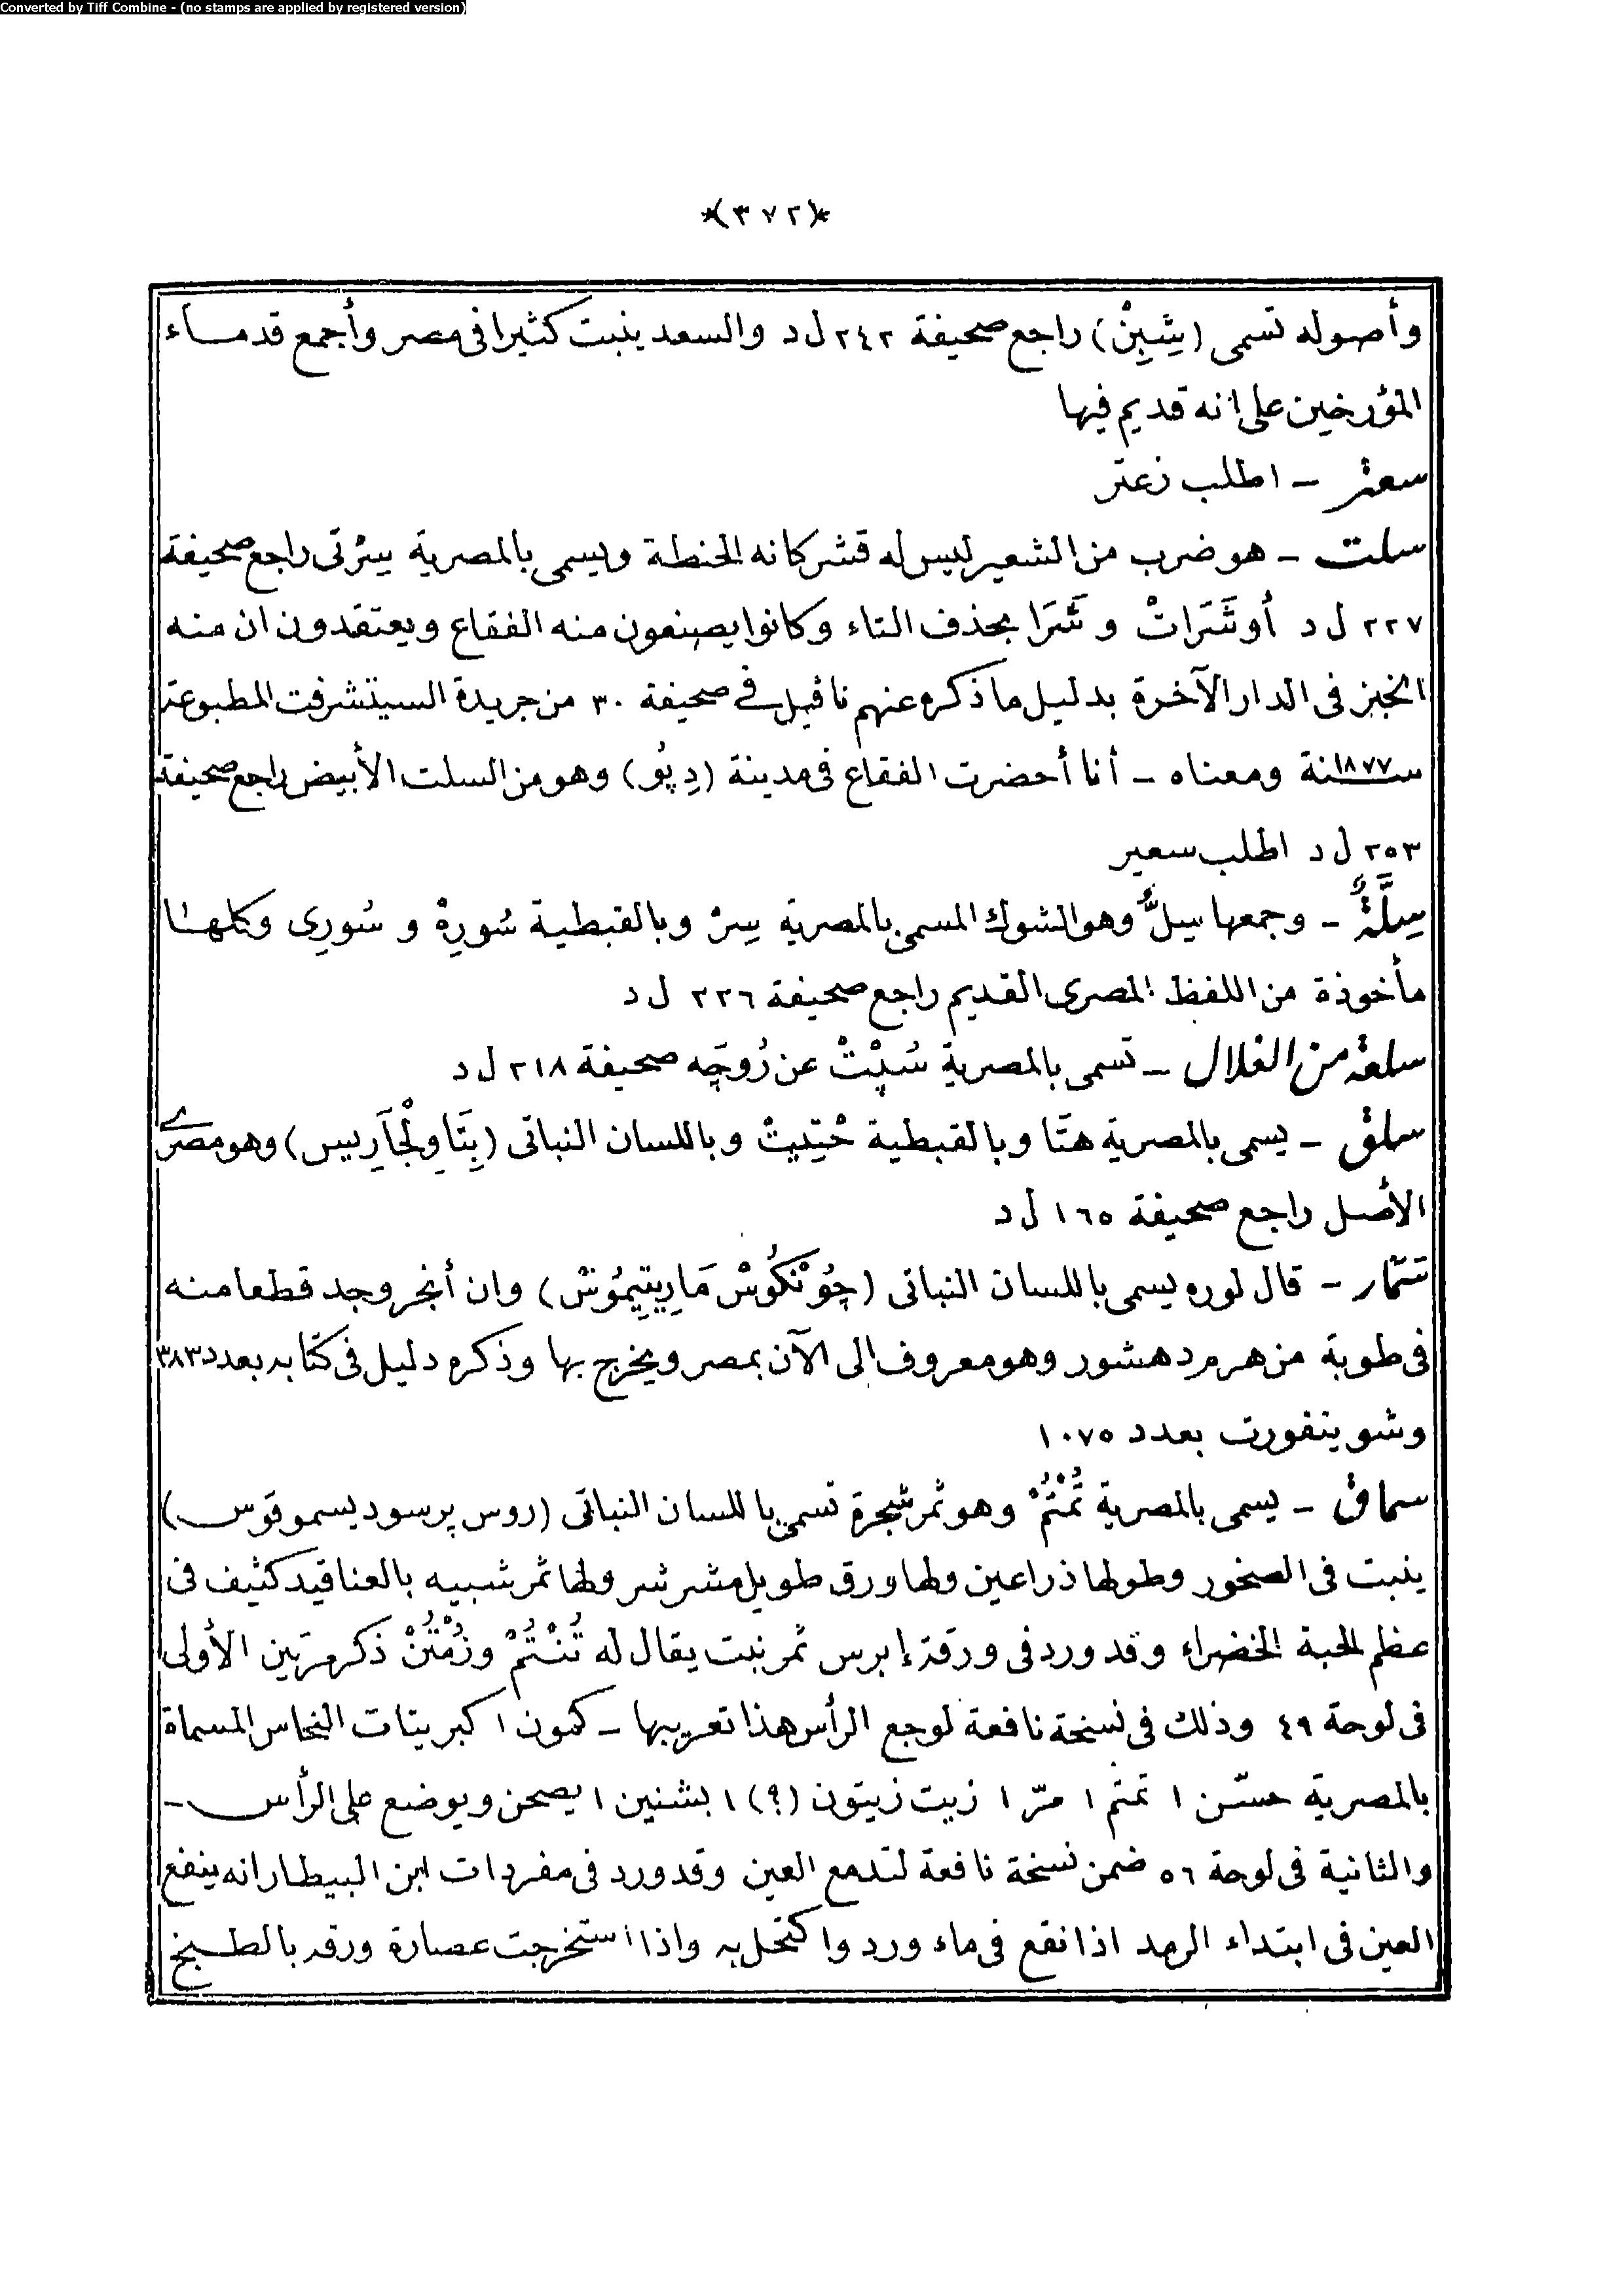 Converted by Tiff Combine - (no stamps are applied by registered version)
*(٣٧٢)*
وأصوله تسمى (شِبِنْ) راجع صحيفة ٢٤٢ ل د والسعد ينبت كثيرا فى مصر وأجمع قدماء
المؤرخين على انه قديم فيها
سعتر – اطلب زعتر
سلت – هو ضرب من الشعير ليس له قشر كانه الحنطة ويسمى بالمصرية راجع صحيفة
٢٢٧ ل د بحذف التاء وكانوا يصنعون منه الفقاع ويعتقدون ان منه
الخبز فى الدار الآخرة بدليل ما ذكره عنهم ناڤيل فى صحيفة ٣٠ من جريدة المطبوعة
سنة ١٨٧٧ ومعناه – أنا أحضرت الفقاع فى مدينة (دِپُو) وهو من السلت الأبيض راجع صحيفة
٢٥٣ ل د اطلب سعير
سِلَّةٌ – وجمعها سِلٌّ وهو الشوك المسمى بالمصرية سِرْ وبالقبطية سُورِهْ و سُورِى وكلها
مأخوذة من اللفظ المصرى القديم راجع صحيفة ٢٢٦ ل د
سلعة من الغلال – تسمى بالمصرية سُپْتْ عن رُوجَه صحيفة ٢١٨ ل د
سلق – يسمى بالمصرية هتَا وبالقبطية وباللسان النباتى (بِتَا وِلْجَارِيس) وهو مصرى
الأصل راجع صحيفة ١٦٥ ل د
قال لوره يسمى باللسان النباتى (چُونْكُوسْ مَارِيتِيمُوسْ) وان أنجر وجد قطعا منه
فى طوبة من هرم دهشور وهو معروف الى الآن بمصر ويخرج بها وذكره دليل فى كتابه بعدد ٣٨٣
وشوينفورت بعدد ١٠٧٥
سماق – يسمى بالمصرية تُمْتُمْ وهو ثمر شجرة تسمى باللسان النباتى
ينبت فى الصخور وطولها ذراعين ولها ورق طويل مشرشر ولها ثمر شبيه بالعناقيد كثيف فى
عظم الحبة الخضراء وقد ورد فى ورقة إبرس ثمر نبت يقال له تُنْتُمْ ذكر مرتين الأولى
فى لوحة ٤٩ وذلك فى نسخة نافعة لوجع الرأس هذا تعريبها – كمون ١ كبريتات النحاس المسماة
بالمصرية ١ تمتم ١ مرّ ١ زيت زيتون (؟) ١ بشنين ١ يصحن ويوضع على الرأس –
والثانية فى لوحة ٥٦ ضمن نسخة نافعة لتدمع العين وقد ورد فى مفردات ابن البيطار انه ينفع
العين فى ابتداء الرمد اذا نقع فى ماء ورد واكتحل به واذا استخرجت عصارة ورقه بالطبخ